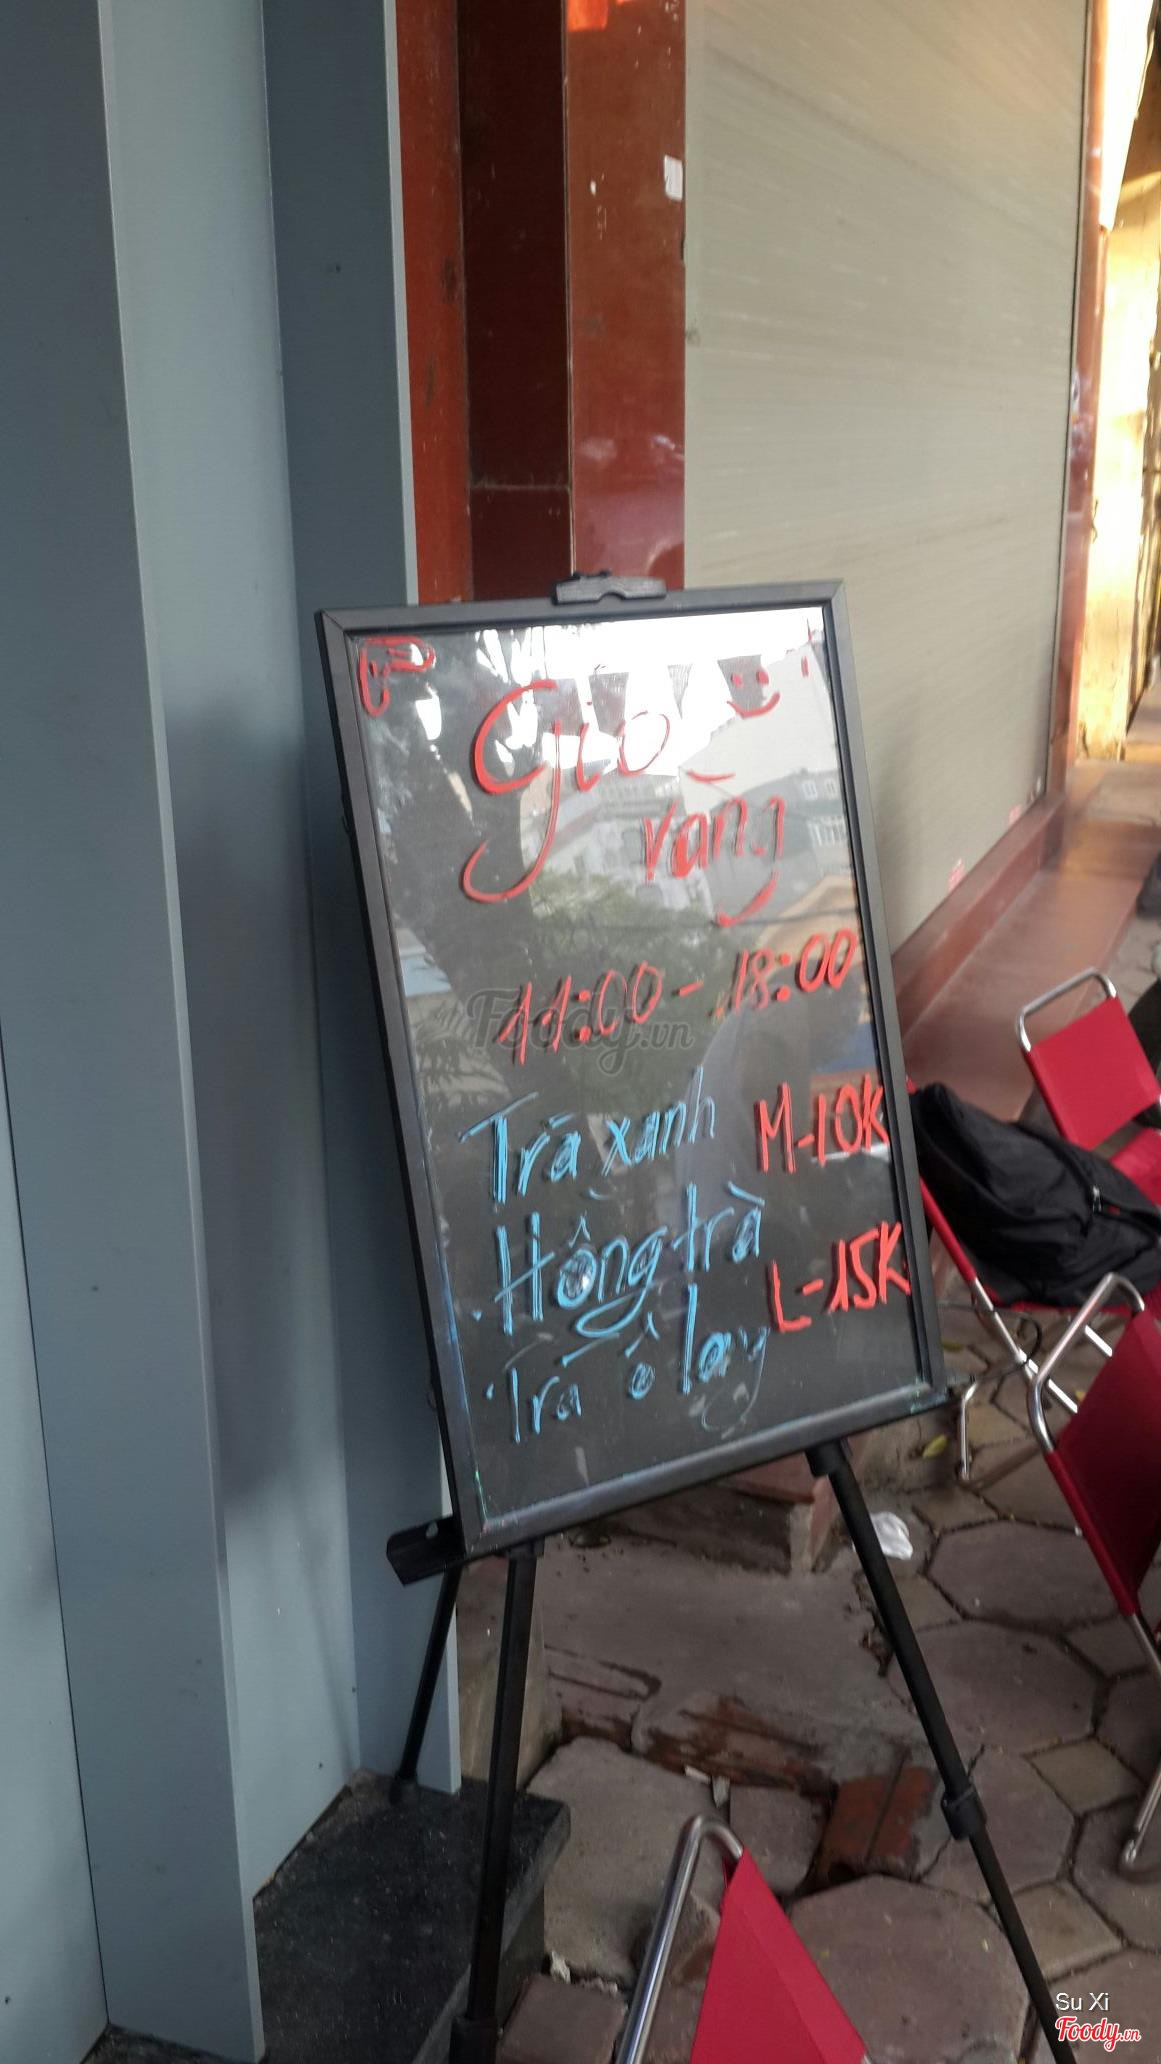 Giờ
vàng
11:00 - 18:00
Trà xanh M-10K
Hồng trà
L-15K
Trà ô lay
Foody.vn
Su Xi
Foody.vn